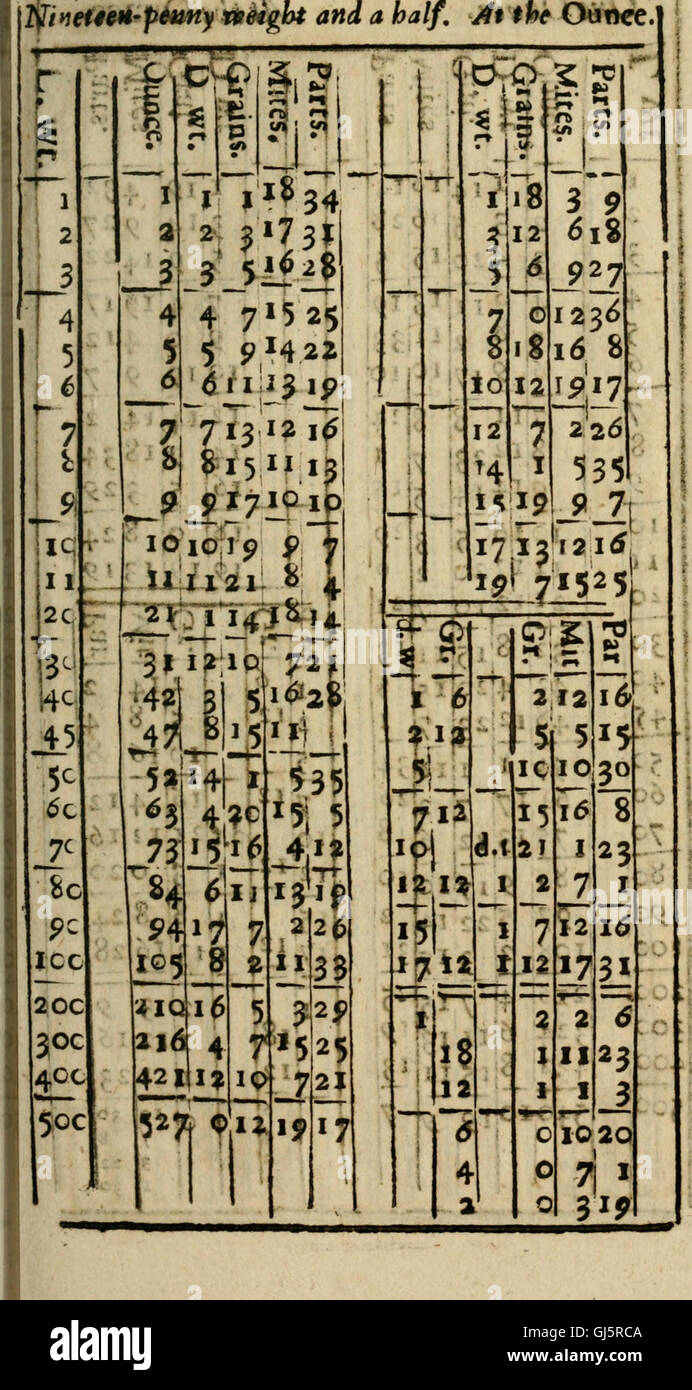 Nineteen-penny weight and a half. At the Ounce.
L. wt. Ounce. D wt. Grains. Mites, Parts.
1 1 1 1 18 34
2 2 2 3 17 31
3 3 3 5 16 28
4 4 4 7 15 25
5 5 5 9 14 22
6 6 6 11 13 19
7 7 7 13 12 16
8 8 8 15 11 13
9 9 9 17 10 10
10 10 10 19 9 7
11 11 11 21 8 4
20 21 1 14 18 14
30 31 12 10 7 21
40 42 3 5 16 28
45 47 8 15 11
50 52 14 1 5 35
60 63 4 20 15 5
70 73 15 16 4 12
80 84 6 11 13 19
90 94 17 7 2 26
100 105 8 2 11 33
200 210 16 5 3 29
300 216 4 7 15 25
400 421 12 10 7 21
500 527 0 12 19 17
D. wt. Grains. Mites. Parts.
1 18 3 9
3 12 6 18
5 6 9 27
7 0 12 36
8 18 16 8
10 12 19 17
12 7 2 26
14 1 5 35
15 19 9 7
17 13 12 16
19 7 15 25
d. w Gr. Gr. Mit Par
1 6 2 12 16
2 12 5 5 15
5 10 10 30
7 12 15 16 8
10 d.t 21 1 23
12 12 1 2 7 1
15 1 7 12 16
17 12 1 12 17 31
1 2 2 6
18 1 11 23
12 1 1 3
6 0 10 20
4 0 7 1
2 0 3 19
alamy stock photo
GJ5RCA
www.alamy.com